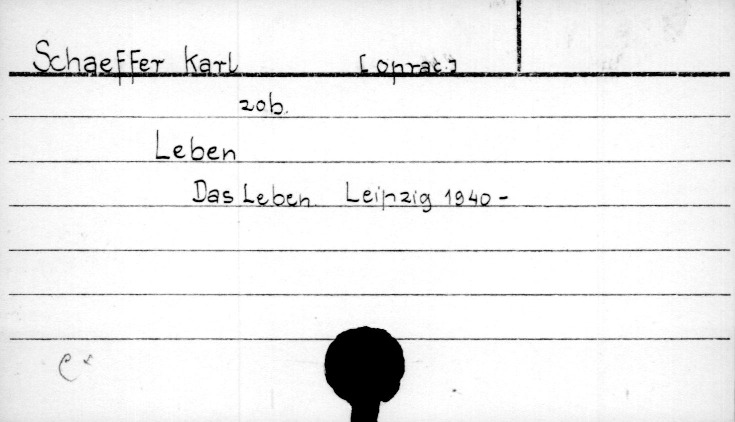 Schaeffer Karl [oprac.]
zob.
Leben
Das Leben. Leipzig 1940 -